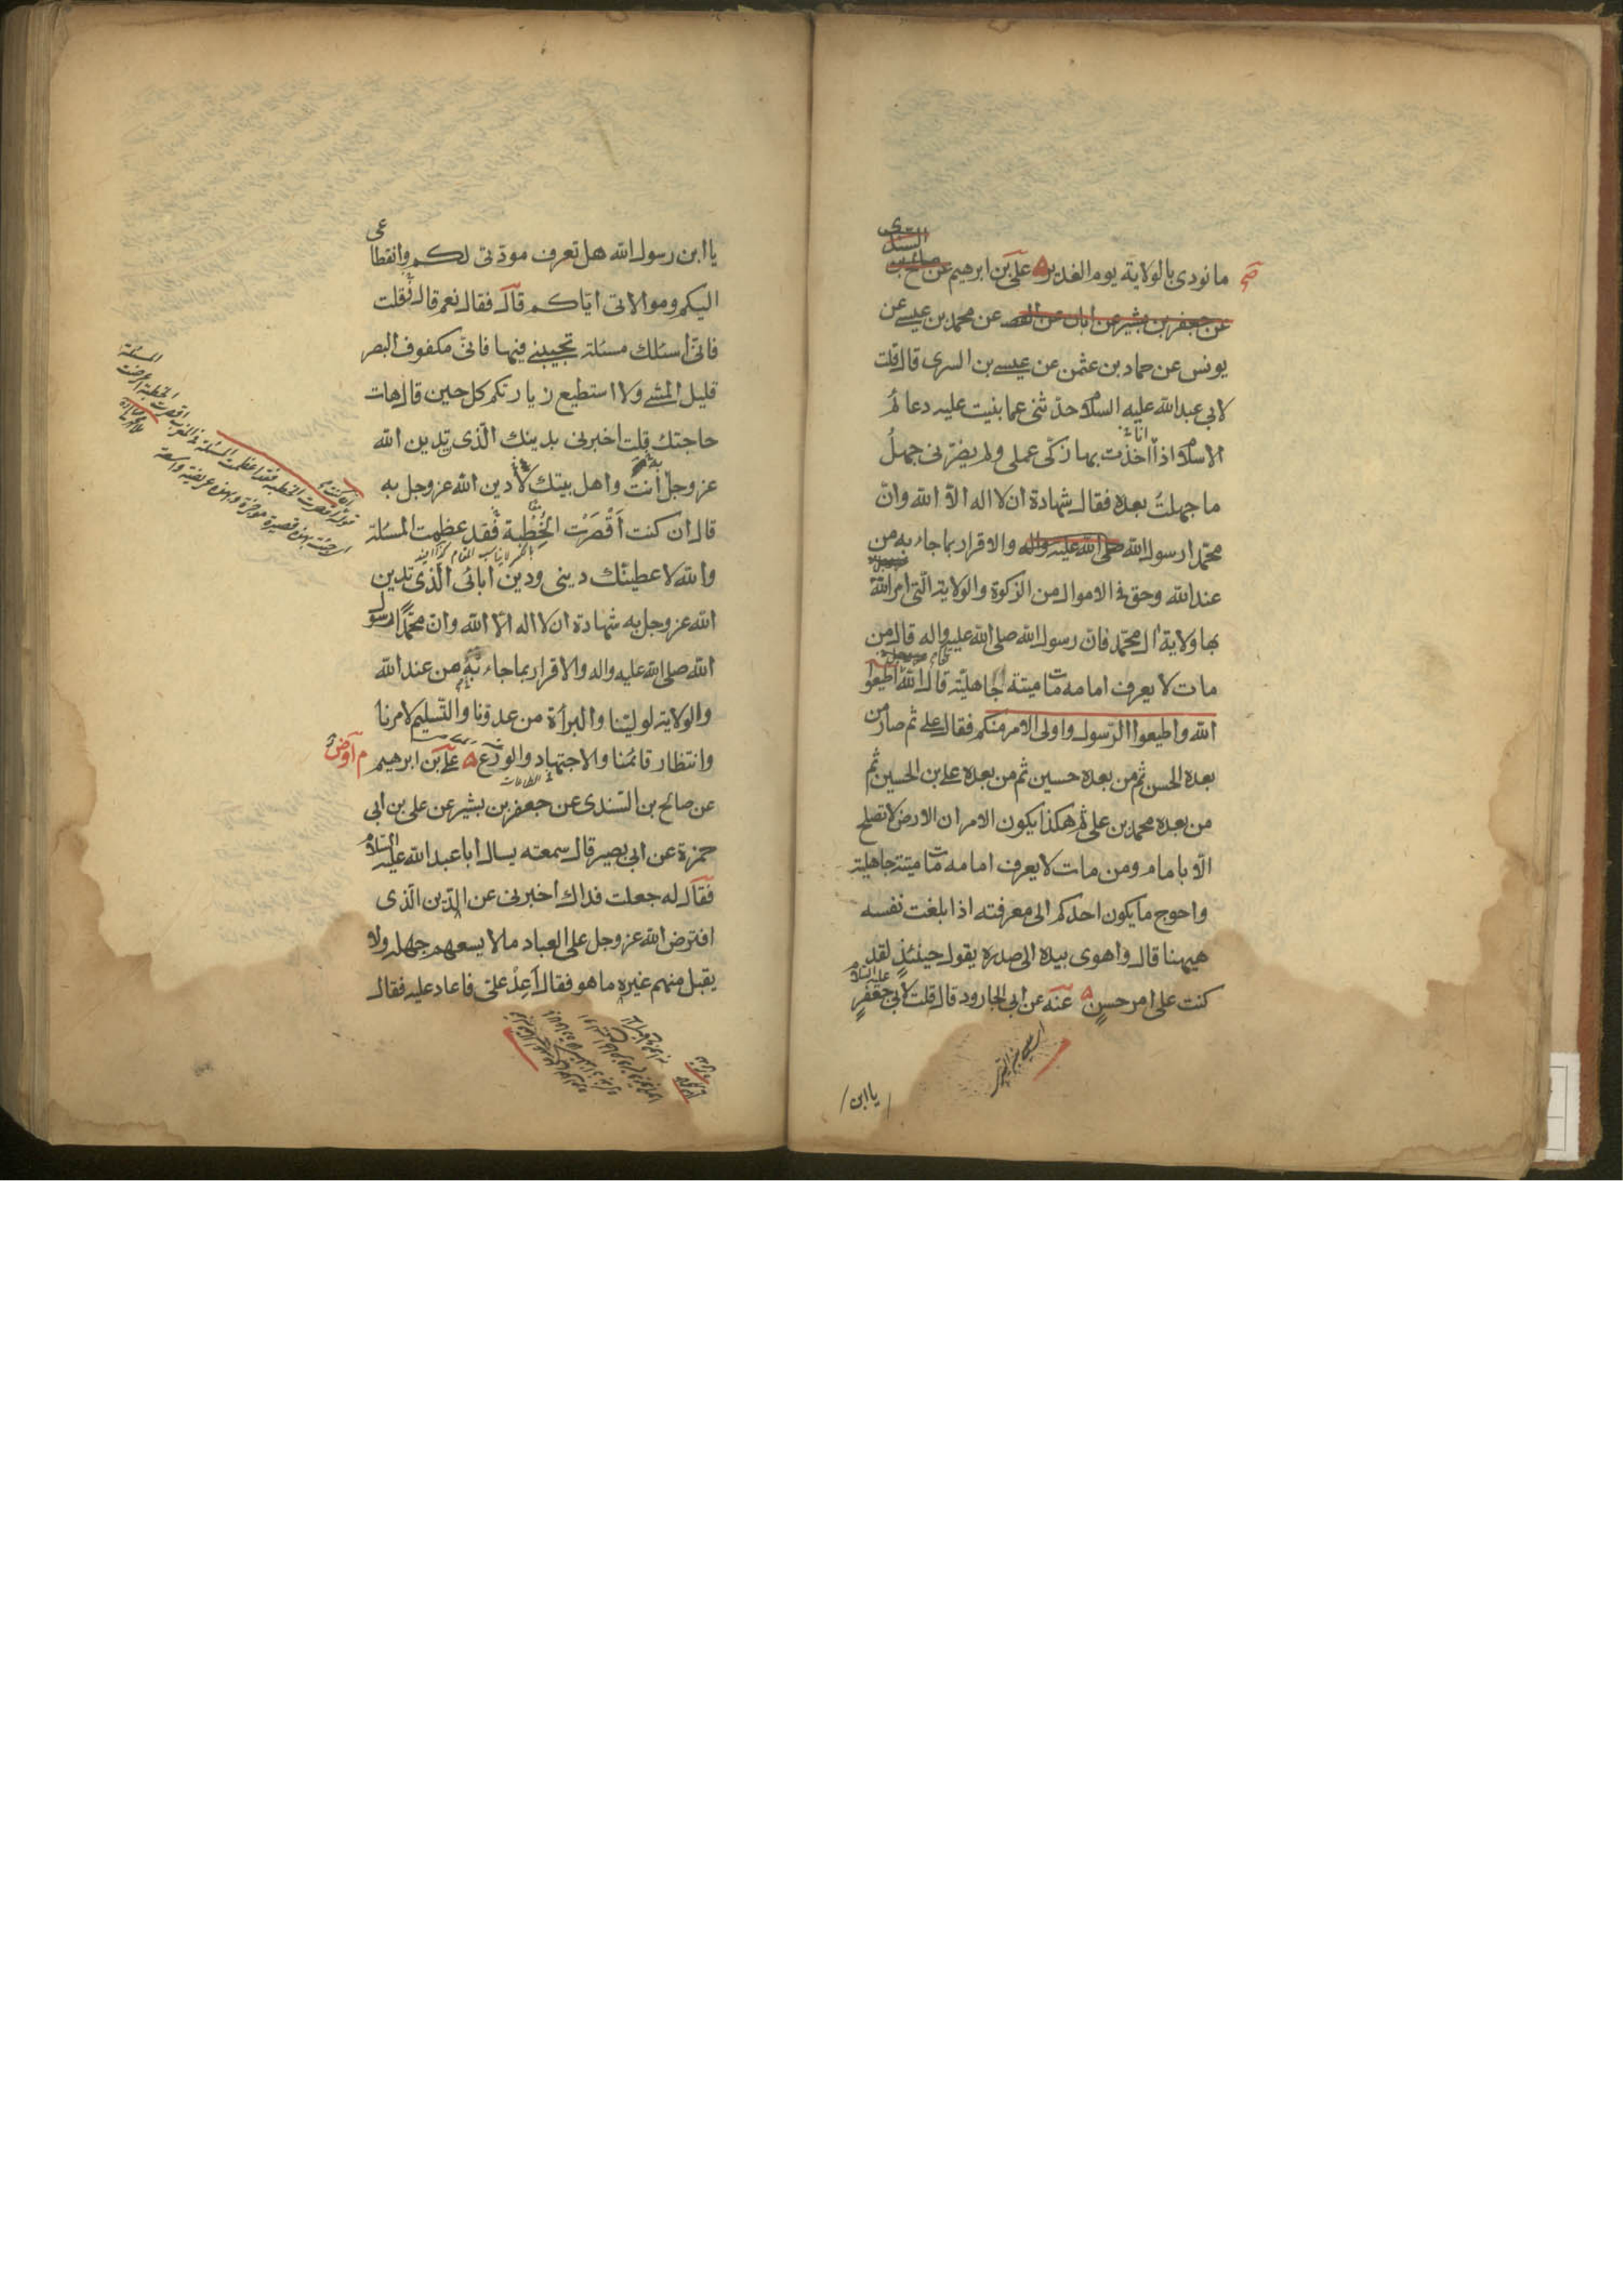 ما نودى بالولاية يوم الغدير علي بن ابرهيم عن صالح بن السندى
عن جعفر بن بشير عن ابان عن الفض عن محمد بن عيسى عن
يونس عن حماد بن عثمن عن عيسى بن السرى قال قلت
لابى عبد الله عليه السلام حدثنى عما بنيت عليه دعائم
الاسلام اذا انا اخذت بها زكى عملى ولم يضرنى جهل
ما جهلت بعده فقال شهادة ان لا اله الا الله وان
محمدا رسول الله صلى الله عليه واله والاقرار بما جاء به من
عند الله وحق فى الاموال من الزكوة والولاية التى امر الله
بها ولاية ال محمد فان رسول الله صلى الله عليه واله قال من
مات لا يعرف امامه مات ميتة جاهلية قال الله اطيعوا
الله واطيعوا الرسول واولى الامر منكم فقال على ثم صار من
بعده الحسن ثم من بعده حسين ثم من بعده على بن الحسين ثم
من بعده محمد بن على ثم هكذا يكون الامر ان الارض لا تصلح
الا بامام ومن مات لا يعرف امامه مات ميتة جاهلية
واحوج ما يكون احدكم الى معرفته اذا بلغت نفسه
هيهنا قال واهوى بيده الى صدره يقول حينئذ لقد
كنت على امر حسن عنه عن ابى الجارود قال قلت لابى جعفر عليه السلام
يا ابن
يا ابن رسول الله هل تعرف مودتى لكم وانقطاعى
اليكم وموالاتى اياكم قال فقال نعم قال فقلت
فانى اسئلك مسئلة تجيبنى فيها فانى مكفوف البصر
قليل المشى ولا استطيع زيارتكم كل حين قال هات
حاجتك قلت اخبرنى بدينك الذى تدين الله
عز وجل به انت واهل بيتك لادين الله عز وجل به
قال ان كنت اَقْصَرْت الخُطْبة فقد عظمت المسئلة
والله لاعطينك دينى ودين ابائى الذى تدين
الله عز وجل به شهادة ان لا اله الا الله وان محمدا رسول
الله صلى الله عليه واله والاقرار بما جاء به من عند الله
والولاية لولينا والبرأة من عدونا والتسليم لامرنا
وانتظار قائمنا والاجتهاد والورع علي بن ابرهيم
عن صالح بن السندى عن جعفر بن بشير عن على بن ابى
حمزة عن ابى بصير قال سمعته يسال ابا عبد الله عليه السلام
فقال له جعلت فداك اخبرنى عن الدين الذى
افترض الله عز وجل على العباد ما لا يسعهم جهله ولا
يقبل منهم غيره ما هو فقال اَعِدْ علىّ فاعاد عليه فقال